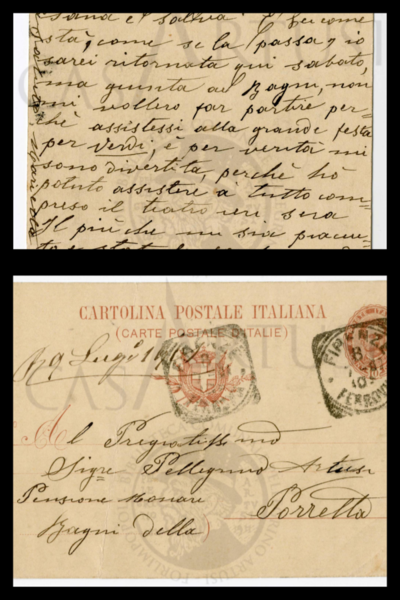 sana e salva. E lei come
sta, come se la passa, io
sarei ritornata qui sabato,
ma giunta ai Bagni, non
mi vollero far partire per=
chè assistessi alla grande festa
per Verdi, e per verità mi
sono divertita, perchè hò
potuto assistere à tutto com=
preso il teatro ieri sera
Il più che mi sia piaciu=
CARTOLINA POSTALE ITALIANA
(CARTE POSTALE D'ITALIE)
29 Luglio
FIRENZE
FERROVIA
Al Pregiatissimo
Sigre Pellegrino Artusi
Pensione
Bagni della) Porretta
CASA ARTUSI